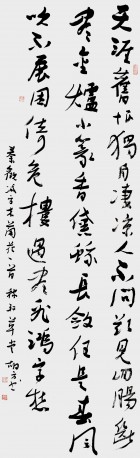 天涯舊恨獨自凄涼人不問欲見回腸斷
盡金爐小篆香黛蛾長斂任是春風
吹不展困倚危樓過盡飛鴻字字愁
秦觀減字木蘭花一首